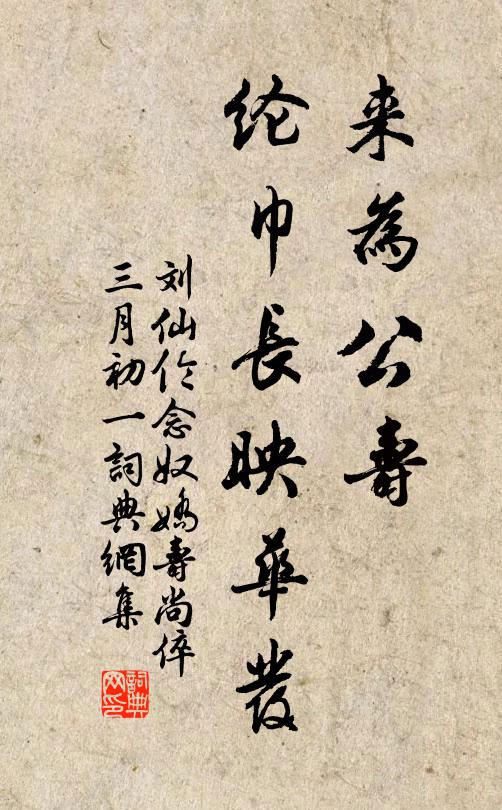 来為公壽
纶巾長映華發
刘仙伦念奴嬌壽尚倅
三月初一詞典網集
詞典
网印